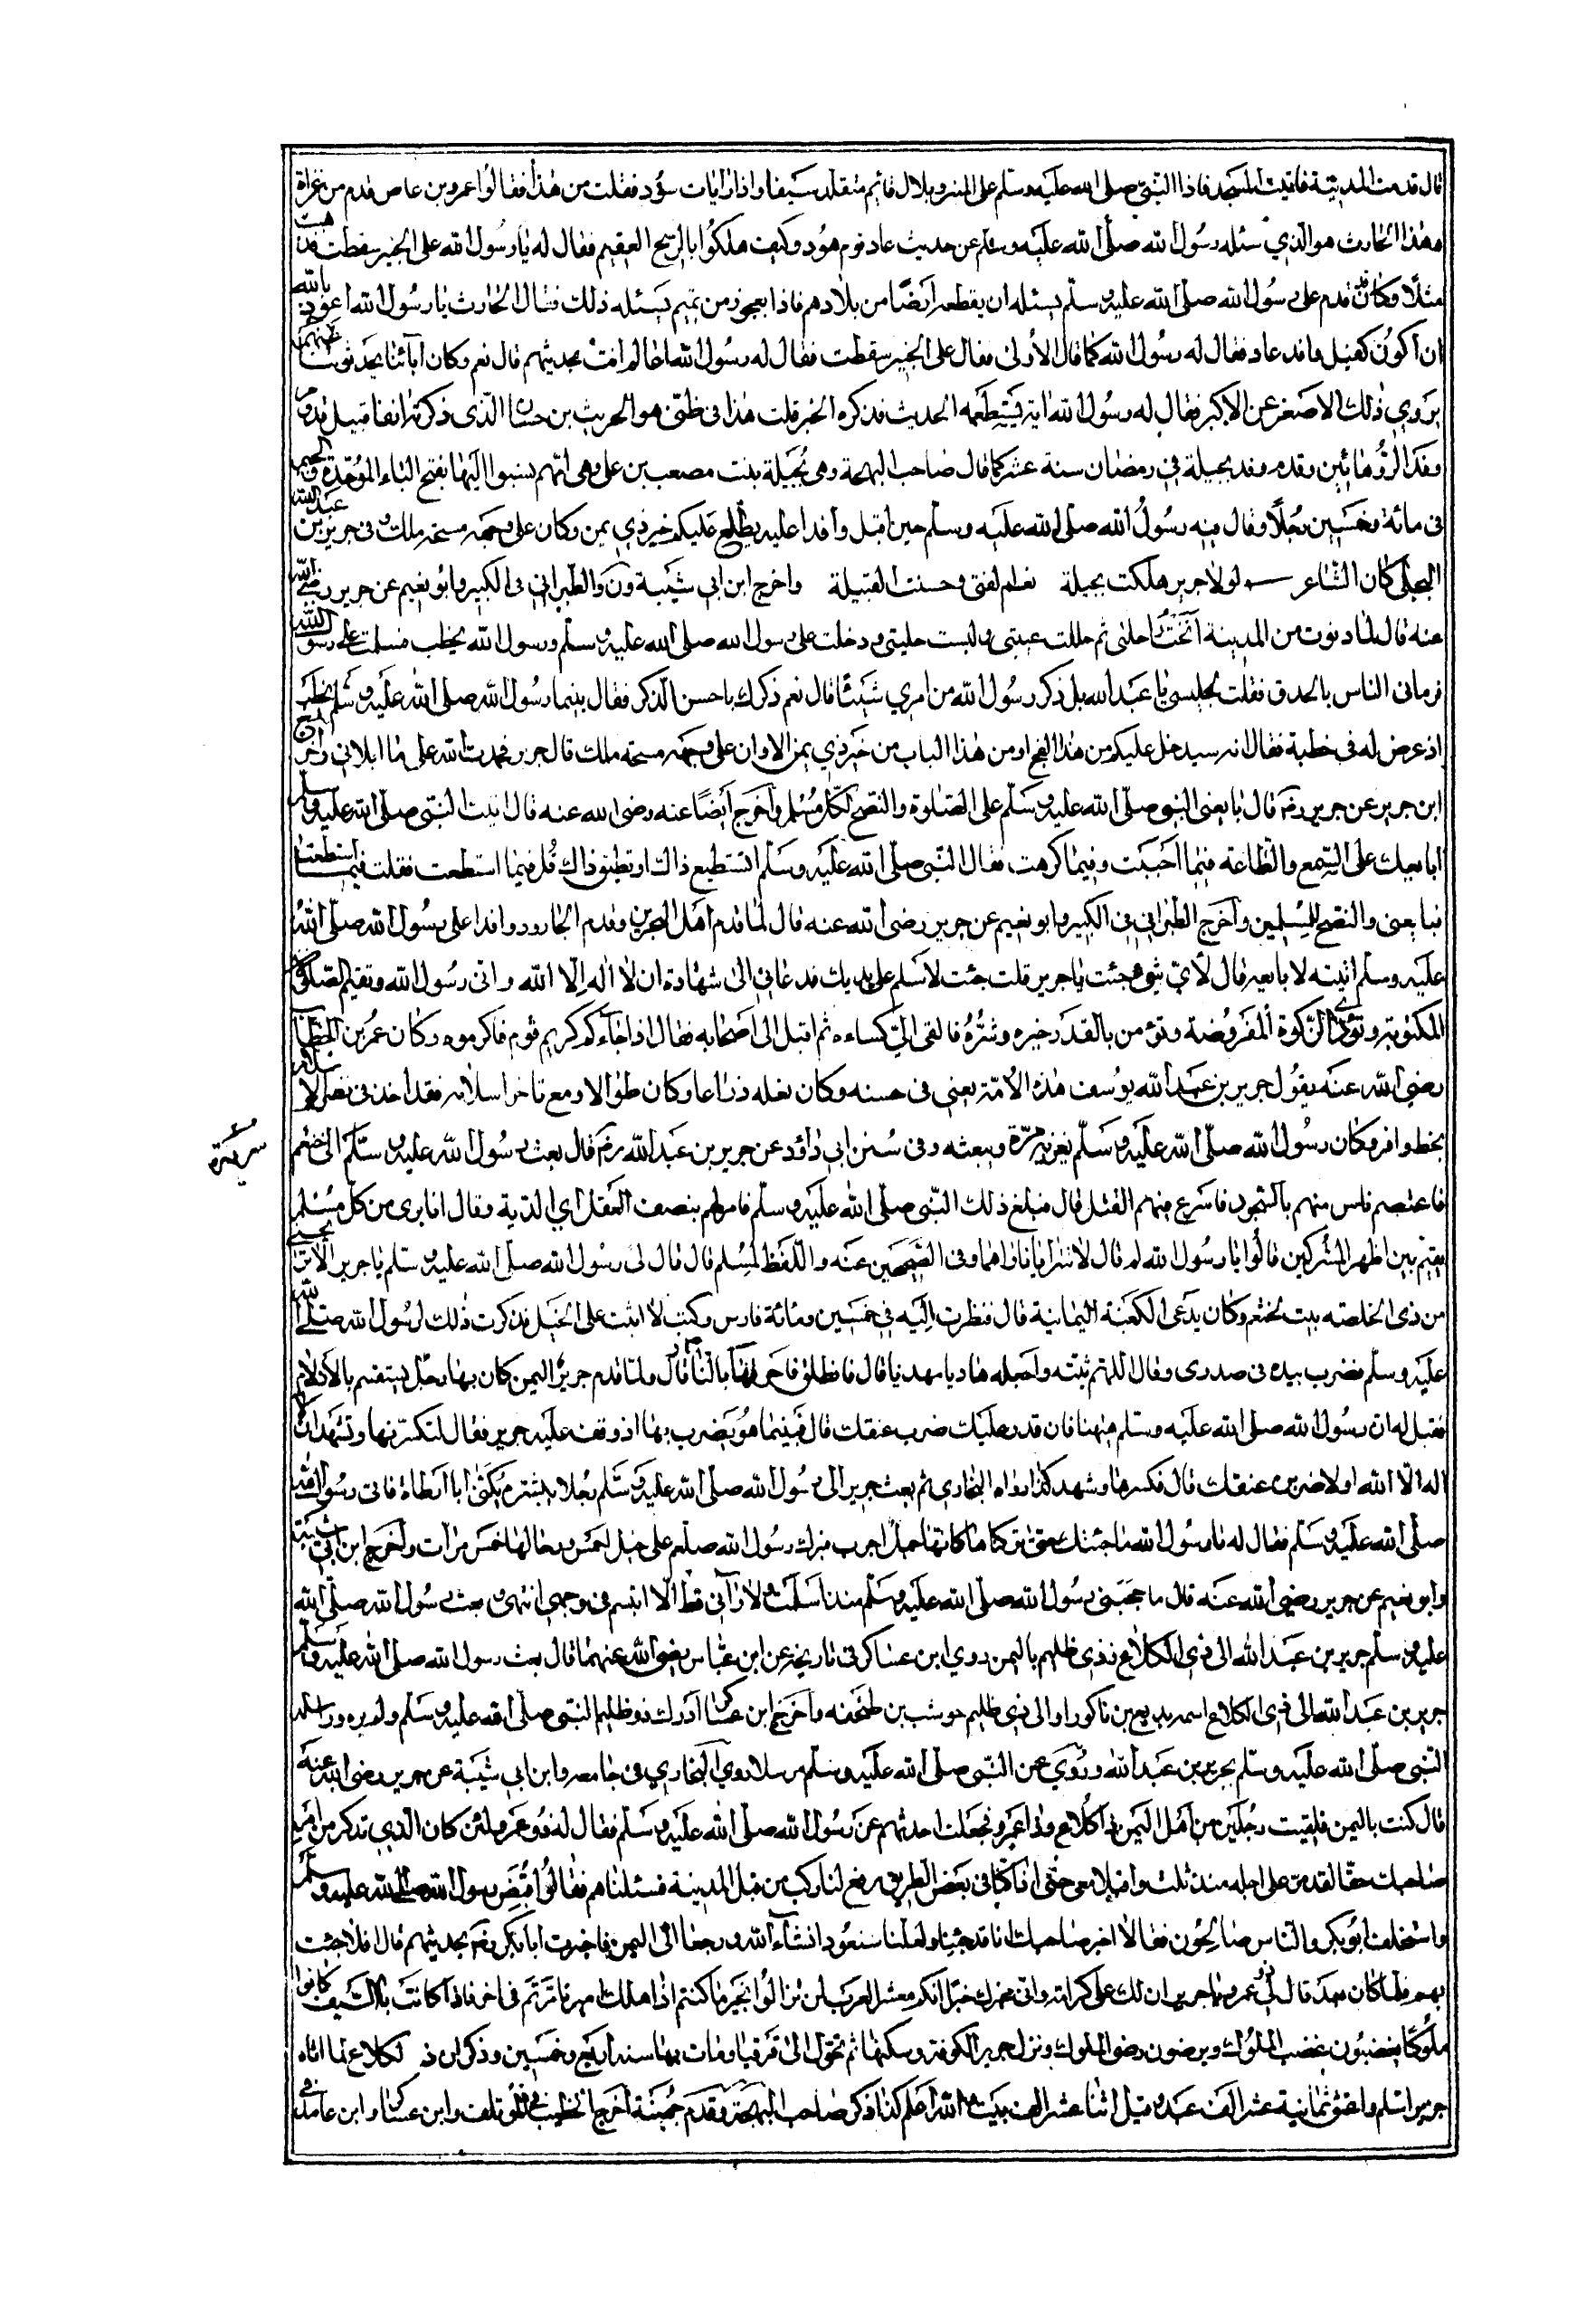 قال قدمت المدينة فاتيت المسجد فاذا النبي صلى الله عليه وسلم على المنبر وبلال قائم متقلد سيفا واذا رايات سود فقلت من هذا فقالوا عمرو بن عاص قدم من غزاة
وهذا الحارث هو الذي سئله رسول الله صلى الله عليه وسلم عن حديث عاد قوم هود وكيف هلكوا بالريح العقيم فقال له يا رسول الله على الخبير سقطت فذهبت
مثلا وكان قد قدم على رسول الله صلى الله عليه وسلم يسئله ان يقطعه ايضا من بلادهم فاذا بعجوز من تميم يسئله ذلك فقال الحارث يا رسول الله اعوذ بالله
ان اكون كقيل وافد عاد فقال له رسول الله كما قال الاول فقال على الخبير سقطت فقال له رسول الله اعالم انت بحديثهم قال نعم وكان آبائنا يحدثونا عنهم
يروي ذلك الاصغر عن الاكبر فقال له رسول الله ايه يستطعمه الحديث فذكره الخبر قلت هذا في ظني هو الحريث بن حسان الذي ذكرته انفا قبيل قدوم
وفد الرهائيين وقدم وفد بجيلة في رمضان سنة عشر كما قال صاحب البهجة وهي بجيلة بنت مصعب بن علي وهي امهم نسبوا اليها بفتح الباء الموحدة والجيم
في مائة وخمسين رجلا وقال فيه رسول الله صلى الله عليه وسلم حين اقبل وافدا عليه يطلع عليكم خير ذي يمن وكان على وجهه مسحة ملك وفي جرير بن عبد الله
البجلي كان الشاعر لولا جرير هلكت بجيلة نعم الفتى وحسنت القبيلة واخرج ابن ابي شيبة ون والطبراني في الكبير وابو نعيم عن جرير رضي الله
عنه قال لما دنوت من المدينة انخت راحلتي ثم حللت عيبتي ولبست حليتي ودخلت على رسول الله صلى الله عليه وسلم ورسول الله يخطب فسلمت على رسول الله
فرماني الناس بالحدق فقلت لجليسي يا عبد الله هل ذكر رسول الله من امري شيئا قال نعم ذكرك باحسن الذكر فقال بينما رسول الله صلى الله عليه وسلم يخطب
اذ عرض له في خطبة فقال انه سيدخل عليكم من هذا الفج او من هذا الباب من خير ذي يمن الا وان على وجهه مسحة ملك قال جرير فحمدت الله على ما ابلاني واخرج
ابن جرير عن جرير رض قال بايعني النبي صلى الله عليه وسلم على الصلوة والنصح لكل مسلم واخرج ايضا عنه رضي الله عنه قال اتيت النبي صلى الله عليه وسلم
ابايعك على السمع والطاعة فيما احببت وفيما كرهت فقال النبي صلى الله عليه وسلم اتستطيع ذاك او تطيق ذاك قل فيما استطعت فقلت فيما استطعت
فبايعني والنصح للمسلمين واخرج الطبراني في الكبير وابو نعيم عن جرير رضي الله عنه قال لما قدم اهل البحرين وقدم الجارود وافدا على رسول الله صلى الله
عليه وسلم اتيته لابايعه قال لأي شيء جئت يا جرير قلت جئت لاسلم على يديك فدعاني الى شهادة ان لا اله الا الله واني رسول الله وتقيم الصلوة
المكتوبة وتؤدي الزكوة المفروضة وتؤمن بالقدر خيره وشره فالقى الي كساءه ثم اقبل الى اصحابه فقال اذا جاءكم كريم قوم فاكرموه وكان عمر بن الخطاب
رضي الله عنه يقول جرير بن عبد الله يوسف هذه الامة يعني في حسنه وكان نعله ذراعا وكان طوالا ومع تاخر اسلامه فقد اخذ في نصر الاسلام
بحظ وافر وكان رسول الله صلى الله عليه وسلم يغزيه مرة ويبعثه وفي سنن ابي داؤد عن جرير بن عبد الله رض قال بعث رسول الله عليه وسلم الى خثعم
سرية
فاعتصم ناس منهم بالسجود فاسرع منهم القتل قال فبلغ ذلك النبي صلى الله عليه وسلم فامر لهم بنصف العقل اي الدية وقال انا برى من كل مسلم
مقيم بين اظهر المشركين قالوا يا رسول الله لم قال لا تترايا ناراهما وفي الصحيحين عنه واللفظ لمسلم قال قال لي رسول الله صلى الله عليه وسلم يا جرير الا تريحني
من ذي الخلصة بيت لخثعم وكان يدعى الكعبة اليمانية قال فنظرت اليه في خمسين ومائة فارس وكنت لا اثبت على الخيل فذكرت ذلك لرسول الله صلى الله
عليه وسلم فضرب بيده في صدري وقال اللهم ثبته واجعله هاديا مهديا قال فانطلق فاحرقها بالنار قال ولما قدم جرير اليمن كان بها رجل يستقسم بالازلام
فقيل له ان رسول الله صلى الله عليه وسلم ههنا فان قدر عليك ضرب عنقك قال فبينما هو يضرب بها اذ وقف عليه جرير فقال لتكسرنها وتشهد ان لا
اله الا الله او لاضربن عنقك قال فكسرها وشهد كذا رواه البخاري ثم بعث جرير الى رسول الله صلى الله عليه وسلم رجلا يبشره يكنى ابا ارطاة فاتى رسول الله
صلى الله عليه وسلم فقال له يا رسول الله ما جئتك حتى تركناها كانها جمل اجرب فبرك رسول الله صلعم على خيل احمس ورجالها خمس مرات واخرج ابن ابي شيبة
وابو نعيم عن جرير رضي الله عنه قال ما حجبني رسول الله صلى الله عليه وسلم منذ اسلمت ولا رآني قط الا ابتسم في وجهي انتهى وبعث رسول الله صلى الله
عليه وسلم جرير بن عبد الله الى ذي الكلاع وذي ظليم باليمن روي ابن عساكر في تاريخه عن ابن عباس رضي الله عنهما قال بعث رسول الله صلى الله عليه وسلم
جرير بن عبد الله الى ذي الكلاع اسمه بن ناكورا والى ذي ظليم حوشب بن طخمة واخرج ابن عساكر ادرك ذو ظليم النبي صلى الله عليه وسلم ولم يره وراسله
النبي صلى الله عليه وسلم بجرير بن عبد الله وروي عن النبي صلى الله عليه وسلم مرسلا روي البخاري في جامعه وابن ابي شيبة عن جرير رضي الله عنه
قال كنت باليمن فلقيت رجلين من اهل اليمن ذا كلاع وذا عمرو فجعلت احدثهم عن رسول الله صلى الله عليه وسلم فقال له ذو عمرو لئن كان الذي تذكر من امر
صاحبك حقا لقد مر على اجله منذ ثلث واقبلا معي حتى اذا كنا في بعض الطريق رفع لنا ركب من قبل المدينة فسئلناهم فقالوا قبض رسول الله صلى الله عليه وسلم
واستخلف ابو بكر والناس صالحون فقالا اخبر صاحبك انا قد جئنا ولعلنا سنعود انشاء الله ورجعا الى اليمن فاخبرت ابا بكر رض بحديثهم قال افلا جئت
بهم فلما كان بعد قال لي ذو عمرو يا جرير ان لك علي كرامة واني مخبرك خبرا انكم معشر العرب لن تزالوا بخير ما كنتم اذا هلك امير تامرتم في اخر فاذا كانت بالسيف كانوا
ملوكا يغضبون غضب الملوك ويرضون رضى الملوك ونزل جرير الكوفة وسكنها ثم تحول الى قرقيا ومات بها سنة اربع وخمسين وذكر ان ذ لكلاع لما اتاه
جرير اسلم واعتق ثمانية عشر الف عبد وقيل اثنا عشر الف بيت والله اعلم كذا ذكر صاحب البهجة وقدم جهينة اخرج الخطيب في وابن عساكر وابن